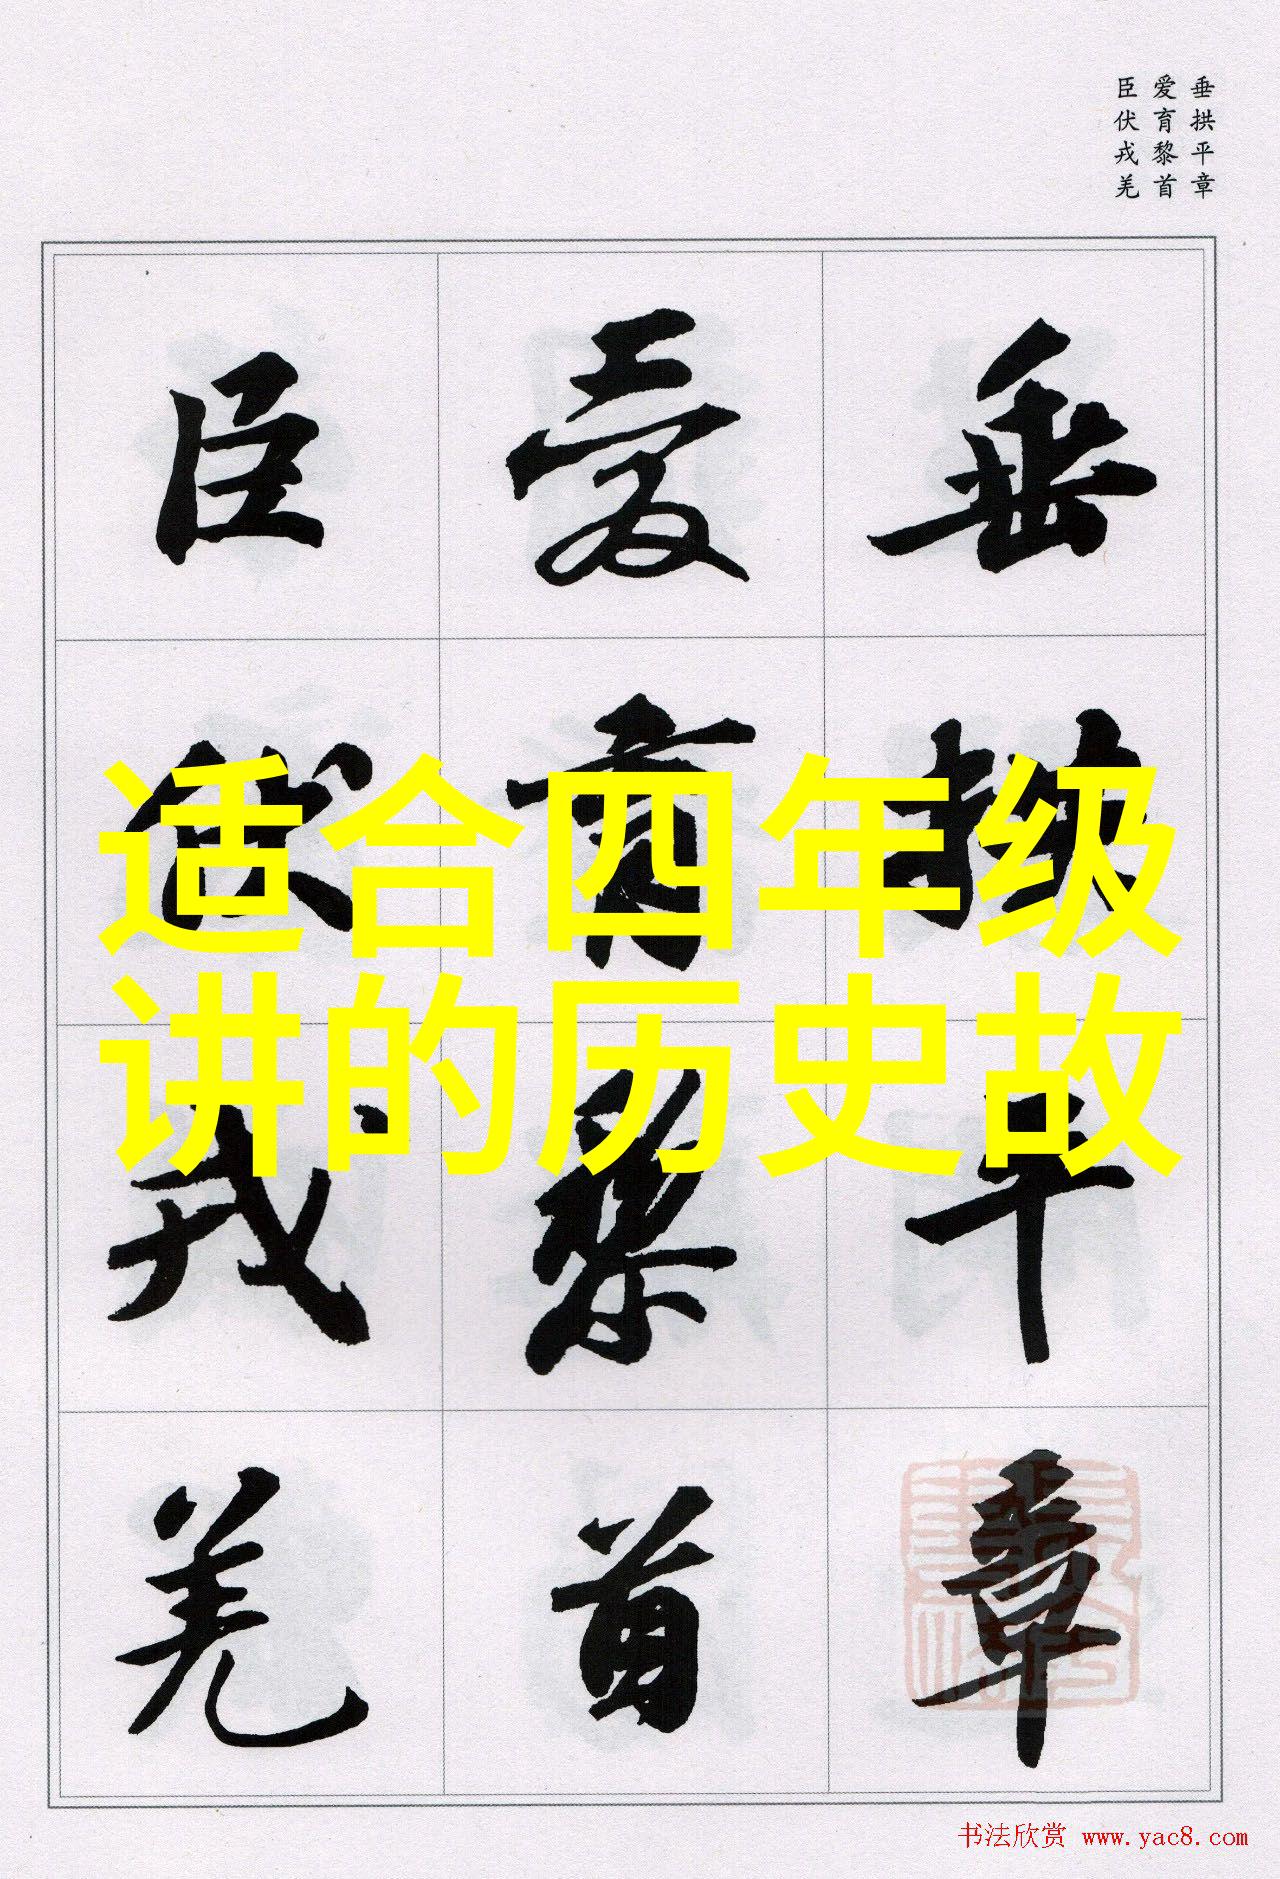 垂拱平章
爱育黎首
臣伏戎羌
垂拱平章
爱育黎首
臣伏戎羌
适合四年级
讲的历史故
书法欣赏 www.yac8.com